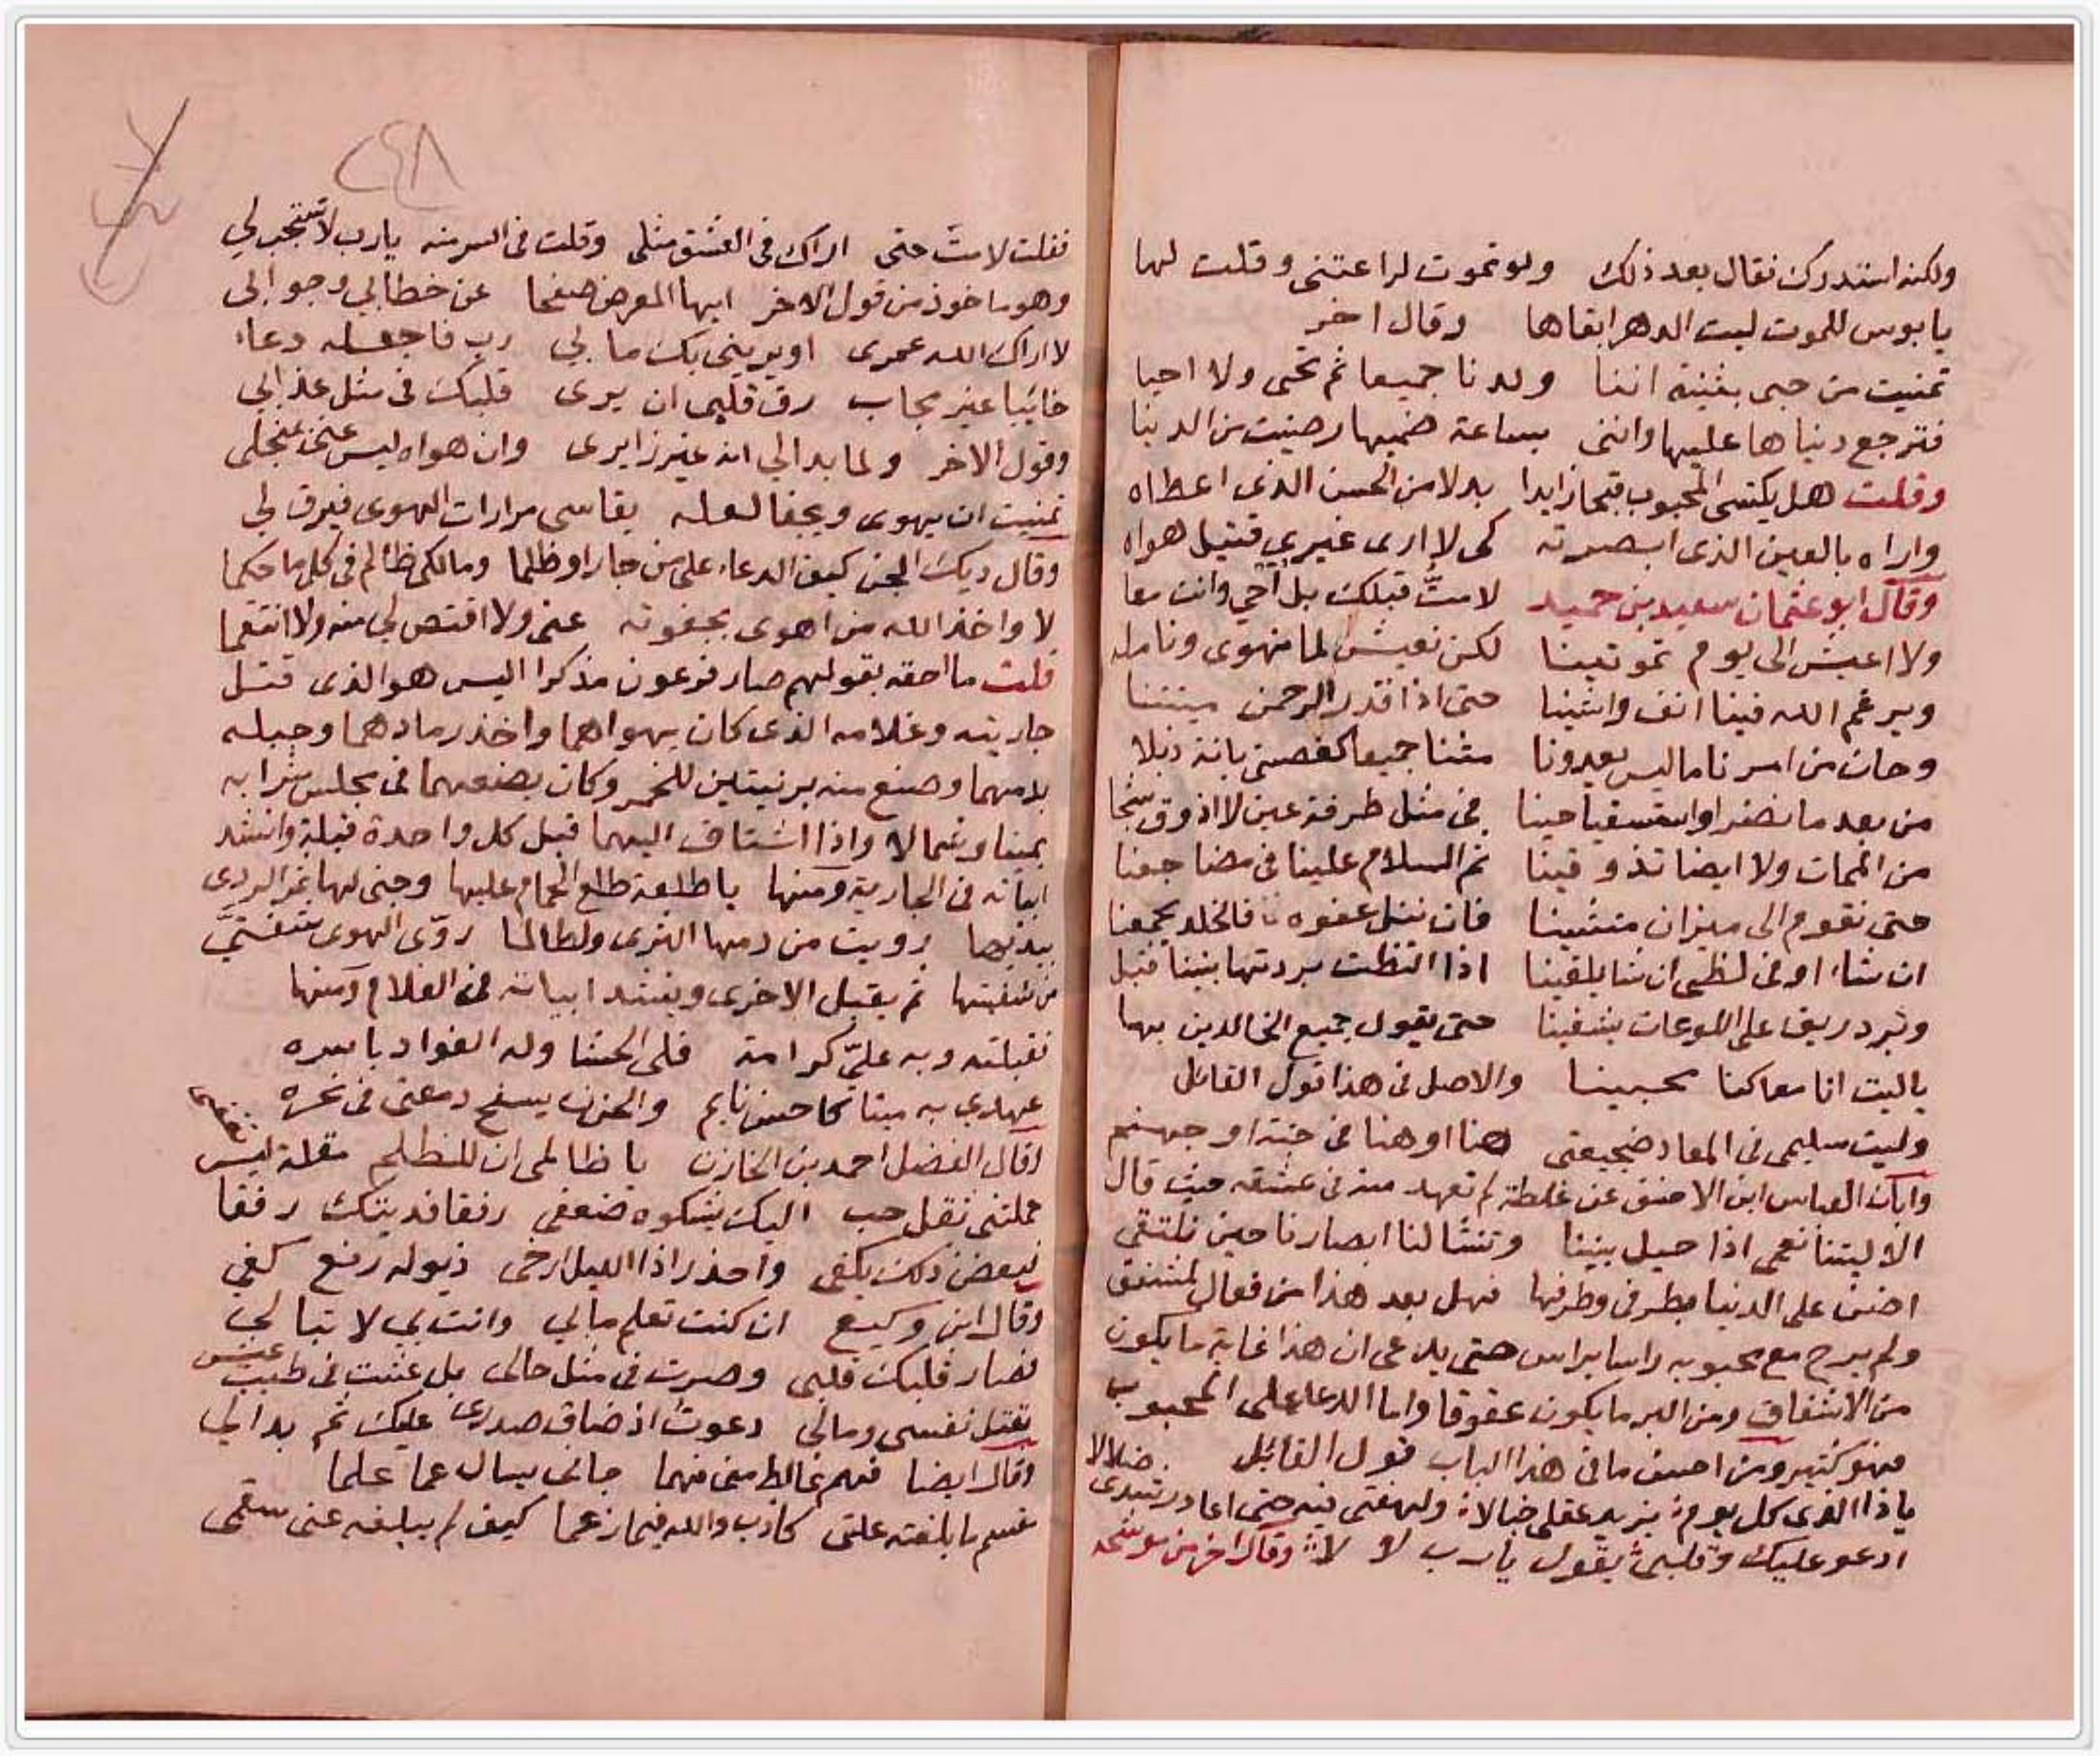 ولكنه استدرك فقال بعد ذلك ولو تموت لراعتني وقلت لها
يا بوس للموت ليت الدهر ابقاها وقال اخر
تمنيت من حبي بثينة اننا ولدنا جميعا ثم تحيى ولا احيا
فترجع دنياها عليها وانني بساعة ضميها رضيت من الدنيا
وقلت هل يكتسى المحبوب قبحا زايدا بدلا من الحسن الذى اعطاه
واراه بالعين الذى ابصرته كى لا ارى غيري قتيل هواه
وقال ابو عثمان سعيد بن حميد لا متّ قبلك بل احيي وانت معا
ولا اعيش الى يوم تموتينا لكن نعيش لما نهوى ونامله
ويرغم الله فينا انف واشينا حتى اذا قدر الرحمن ميتتنا
وحان من امرنا ما ليس يعدونا متنا جميعا كغصني بانة ذبلا
من بعد ما نضرا واستسقيا حينا في مثل طرفة عين لا اذوق شجا
من الممات ولا ايضا تذوقينا ثم السلام علينا في مضاجعنا
حتى نقوم الى ميزان منشينا فان ننل عفوه فالخلد يجمعنا
ان شاء او في لظى ان شا يلقينا اذا التظت بردتها بيننا قبل
وبرد ريق على اللوعات يشفينا حتى يقول جميع الخالدين بها
يا ليت انا معا كنا محبينا والاصل فى هذا قول القائل
وليت سليمى فى المعاد ضجيعتى هنا او هنا فى جنة او جهنم
وابان العباس ابن الاحنف عن غلطة لم تعهد منه فى عشقه حيث قال
الا ليتنا نعمى اذا حيل بيننا وتنشا لنا ابصارنا حين نلتقى
اضن على الدنيا بطرفى وطرفها فهل بعد هذا من فعال لمشفق
ولم يبرح مع محبوبه راسا براس حتى يدعى ان هذا غاية ما يكون
من الاشفاق ومن البر ما يكون عقوقا واما الدعاء على المحبوب
فهو كثير ومن احسن ما فى هذا الباب قول القائل
يا ذا الذى كل يوم يزيد عقلى خبالا ولهفتى فيه حتى اعاد رشدى ضلالا
ادعو عليك وقلبى يقول يا رب لا لا وقال اخر من موشحه
٢٤٨
فقلت لا مت حتى اراك فى العشق مثلى وقلت فى السر منه يا رب لا تستجب لي
وهو ماخوذ من قول الاخر ايها المعرض صفحا عن خطابي وجوابى
لا اراك الله عمرى او يرينى بك ما بي رب فاجعله دعاء
خائبا غير مجاب رق قلبى ان يرى قلبك فى مثل عذابي
وقول الاخر ولما بدا لي انه غير زايرى وان هواه ليس عنى بمنجلى
تمنيت ان يهوى ويجفا لعله يقاسى مرارات الهوى فيرق لي
وقال ديك الجن كيف الدعاء على من جار او ظلما ومالكى ظالم فى كل ما حكما
لا واخذ الله من اهوى بجفوته عنى ولا اقتص لى منه ولا انتقما
قلت ما احقه بقولهم صار فرعون مذكرا اليس هو الذى قتل
جاريته وغلامه الذى كان يهواهما واخذ رمادهما وجبله
بدمهما وصنع منه برنيتين للخمر وكان يضعهما فى مجلس شرابه
يمينا وشمالا واذا اشتاق اليهما قبل كل واحدة قبلة وانشد
ابياته فى الجارية ومنها يا طلعة طلع الحمام عليها وجنى لها ثمر الردى
بيديها رويت من دمها الثرى ولطالما روّى الهوى شفتيّ
من شفتيها ثم يقبل الاخرى وينشد ابياته فى الغلام ومنها
فقبلته وبه علىّ كرامة فلى الحشا وله الفواد باسره
عهدي به ميتا كاحسن نايم والحزن يسفح دمعتى فى نحره
وقال الفضل احمد بن الخازن يا ظالمى ان للظلم مقلة ليس
حملتنى ثقل حب اليك يشكوه ضعفى رفقا فديتك رفقا
فبعض ذلك يكفى واحذر اذا الليل ارخى ذيوله رفع كفي
وقال ابن وكيع ان كنت تعلم مالي وانت بي لا تبالي
فصار قلبك قلبى وصرت فى مثل حالى بل عشت فى طيب عيش
بقتل نفسى ومالى دعوت اذ ضاق صدرى عليك ثم بدا لي
وقال ايضا فهم غالط منى فهما جانى يسال عما علما
قسم ما بلغته علتى كاذب والله فيما زعما كيف لم يبلغه عنى سقمى